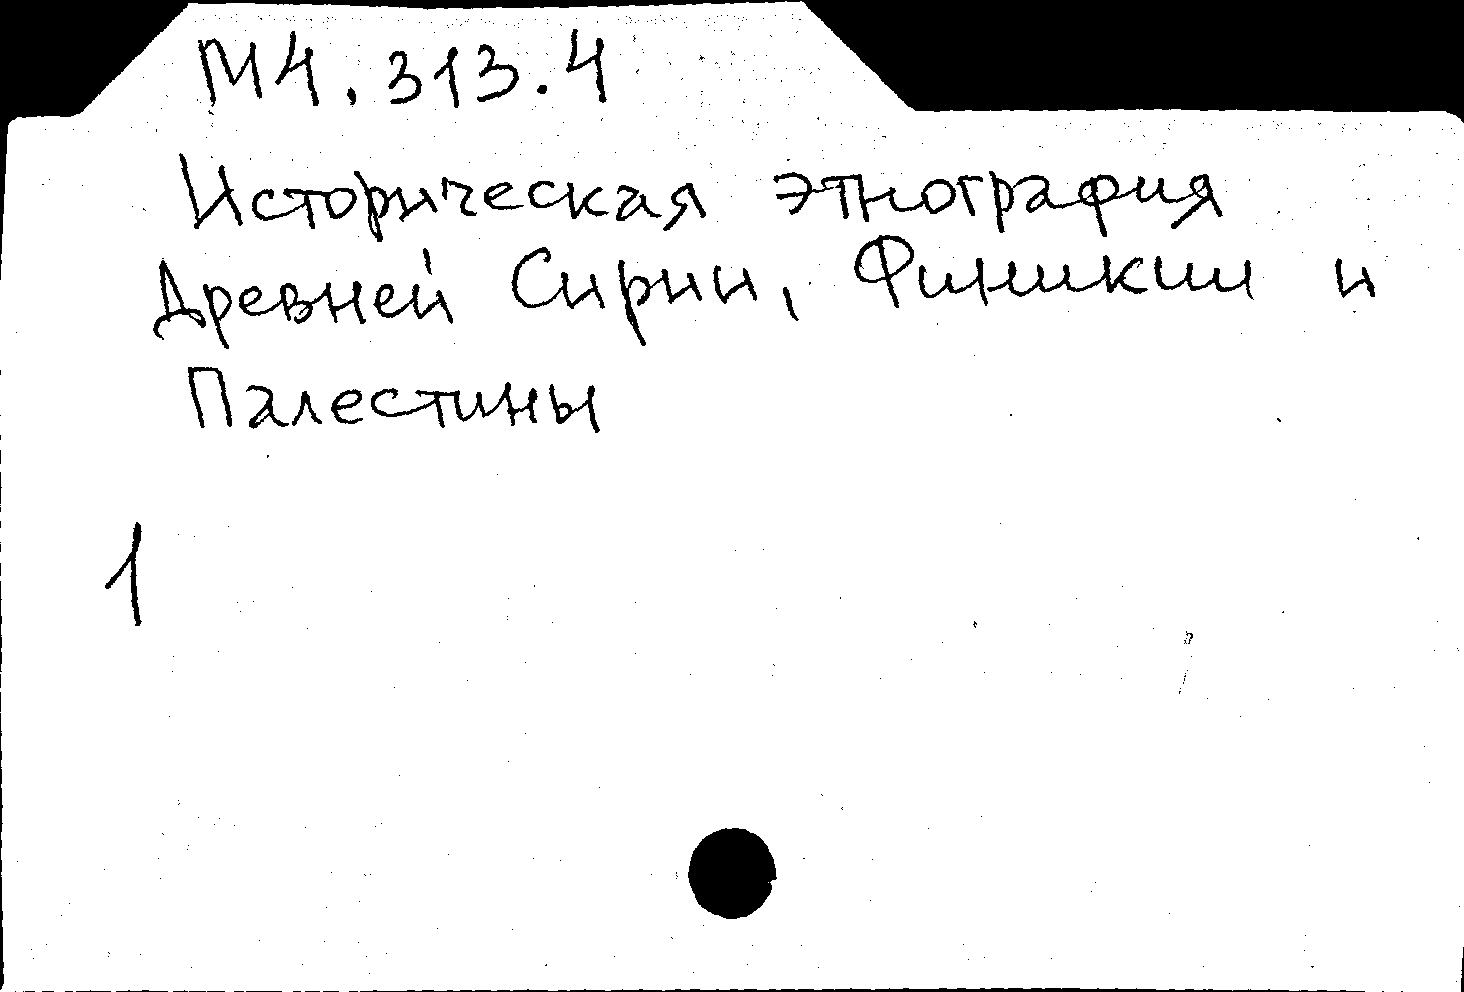 М4.313.4
Историческая этнография
Древней Сирии, Финикии и
Палестины
1